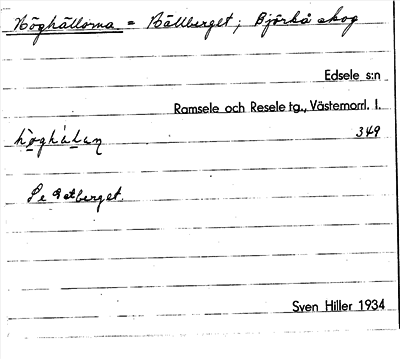 Höghällorna = Bällberget; Björkå skog
Edsele s:n
Ramsele och Resele tg., Västernorrl. l.
349
Se
Sven Hiller 1934